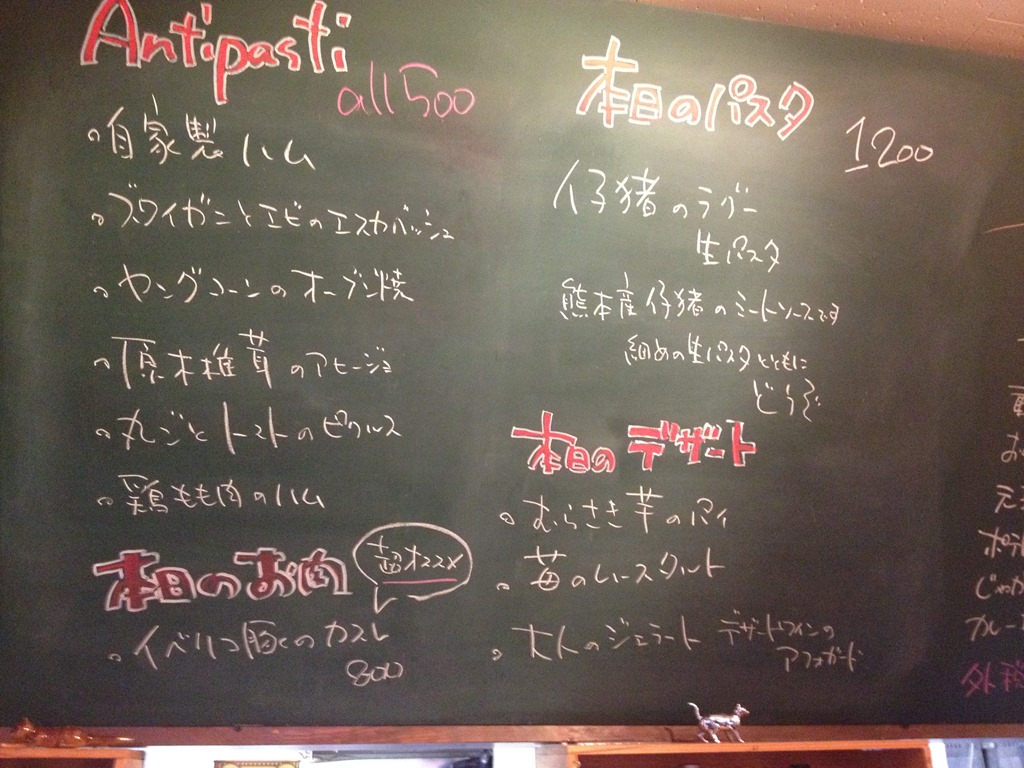 Antipasti
all 500
自家製ハム
ズワイガニとエビのエスカバッシュ
ヤングコーンのオーブン焼
原木椎茸のアヒージョ
丸ごとトマトのピクルス
鶏もも肉のハム
本日のお肉
超オススメ
イベリコ豚のカスレ
800
本日のパスタ
1200
仔猪のラグー
生パスタ
熊本産仔猪のミートソースです
細めの生パスタとともに
どうぞ
本日のデザート
むらさき芋のパイ
苺のレースタルト
大人のジェラート デザートワインの
アフォガード